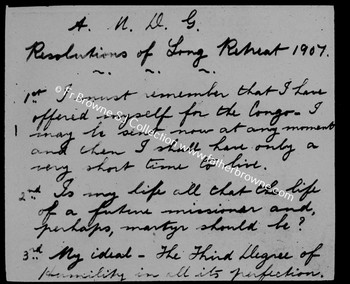 A. M. D. G.
Resolutions of Long Retreat 1907.
1st I must remember that I have
offered myself for the Congo - I
may be sent now at any moment
and then I shall have only a
very short time to live.
2nd Is my life all that the life
of a future missioner and,
perhaps, martyr should be?
3rd My ideal - The Third Degree of
Humility in all its perfection.